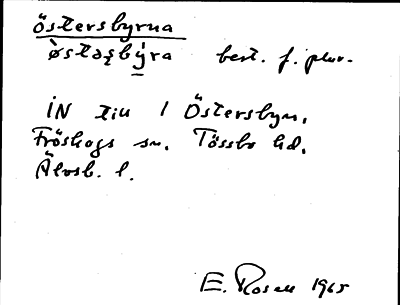 östersbyrna
ø̀stəʂbýra best. f. plur.
IN till 1 Östersbyn,
Fröskogs sn. Tössbo hd.
Älvsb. l.
E. Rosell 1965